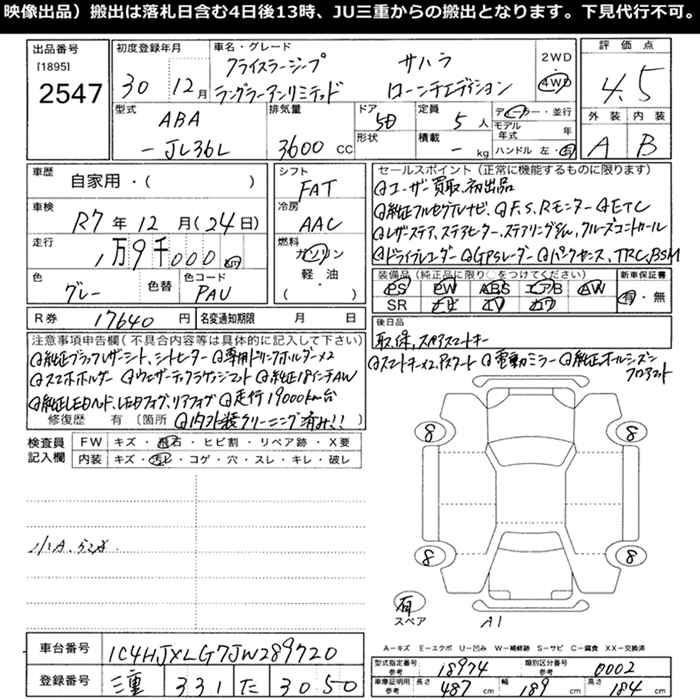 映像出品）搬出は落札日含む4日後13時、JU三重からの搬出となります。下見代行不可。
出品番号 [1895] 2547
初度登録年月 30年 12月
車名・グレード クライスラージープ サハラ
ラングラーアンリミテッド ローンチエディション
2WD 4WD
評価点 4.5
外装 内装
A B
型式 ABA-JL36L
排気量 3600 CC
ドア 5D
形状
定員 5人
積載 - kg
ディーラー・並行
モデル年式 年
ハンドル 左・右
車歴 自家用・( )
車検 R7年 12月 (24日)
走行 1万9千000
色 グレー 色替 色コード PAU
シフト FAT
冷房 AAC
燃料 ガソリン 軽・油 ( )
R券 17640円 名変通知期限 月 日
セールスポイント（正常に機能するものに限ります）
ユーザー買取、初出品
純正フルセグTVナビ、F.S.Rモニター ETC
レザーステア、ステアヒーター、ステアリングスイッチ、クルーズコントロール
ドライブレコーダー GPSレーダー パークセンス、TRC、BSM
装備品（純正品に限り○をつけてください）
PS PW ABS エアB AW
SR ナビ TV カワ
新車保証書 有・無
後日品
取保、スペアスマートキー
スマートキー×2、Pスタート 電動ミラー 純正オールシーズンフロアマット
注意事項申告欄（不具合内容等は具体的に記入して下さい）
純正ブラックレザーシート、シートヒーター 専用ドリンクホルダー×2
スマホホルダー ウェザーテックラゲッジマット 純正18インチAW
純正LEDヘッド、LEDフォグ、リアフォグ 走行19000km台
修復歴 有 〔箇所 内外装クリーニング済み!!〕
検査員記入欄
FW キズ・飛石・ヒビ割・リペア跡・X要
内装 キズ・汚レ・コゲ・穴・スレ・キレ・破レ
8 8
8 8
有 スペア
A1
A－キズ E－エクボ U－凹み W－補修跡 S－サビ C－腐食 XX－交換済
車台番号 1C4HJXLG7JW289720
登録番号 三重 331 た 3050
型式指定番号 参考 18974 類別区分番号 参考 0002
車庫証明用 参考 長さ 487 cm 幅 189 cm 高さ 184 cm